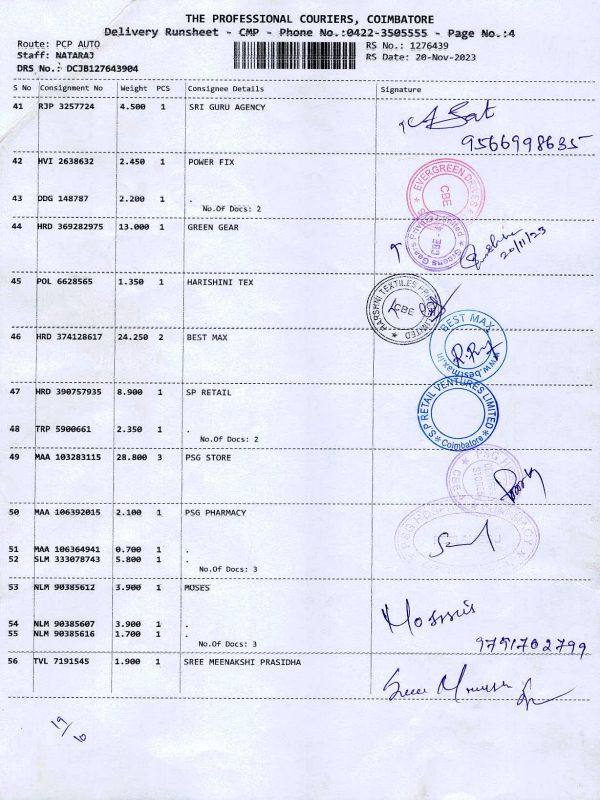 THE PROFESSIONAL COURIERS, COIMBATORE
Delivery Runsheet - CMP - Phone No.:0422-3505555 - Page No.:4
Route: PCP AUTO
RS No.: 1276439
Staff: NATARAJ
RS Date: 20-Nov-2023
DRS No.: DCJB127643904
S No Consignment No Weight PCS Consignee Details Signature
41 RJP 3257724 4.500 1 SRI GURU AGENCY
9566998635
42 HVI 2638632 2.450 1 POWER FIX
EVERGREEN
CBE
43 DDG 148787 2.200 1 .
No.Of Docs: 2
44 HRD 369282975 13.000 1 GREEN GEAR
20/11/23
45 POL 6628565 1.350 1 HARISHINI TEX
TEXTILES
CBE
LIMITED
46 HRD 374128617 24.250 2 BEST MAX
BEST MAX
47 HRD 390757935 8.900 1 SP RETAIL
S P RETAIL VENTURES LIMITED
Coimbatore
48 TRP 5900661 2.350 1 .
No.Of Docs: 2
49 MAA 103283115 28.800 3 PSG STORE
PSG
50 MAA 106392015 2.100 1 PSG PHARMACY
51 MAA 106364941 0.700 1 .
52 SLM 333078743 5.800 1 .
No.Of Docs: 3
53 NLM 90385612 3.900 1 MOSES
54 NLM 90385607 3.900 1 .
55 NLM 90385616 1.700 1 .
No.Of Docs: 3
9791702799
56 TVL 7191545 1.900 1 SREE MEENAKSHI PRASIDHA
Sree
19/6